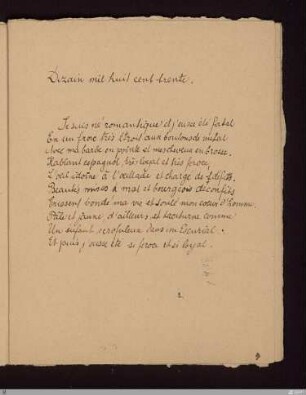 Dizain mil huit cent trente.
Je suis né romantique et j'eusse été fatal
En un frac très étroit aux boutons de métal
Avec ma barbe en pointe et mes cheveux en brosse.
Hablant español, très loyal et très féroce,
L'œil idoine à l'œillade et chargé de défis.
Beautés mises à mal et bourgeois déconfits
Eussent bondé ma vie et soûlé mon cœur d'homme.
Pâle et jaune d'ailleurs, et taciturne comme
Un infant scrofuleux dans un Escurial..
Et puis j'eusse été si féroce et si loyal.